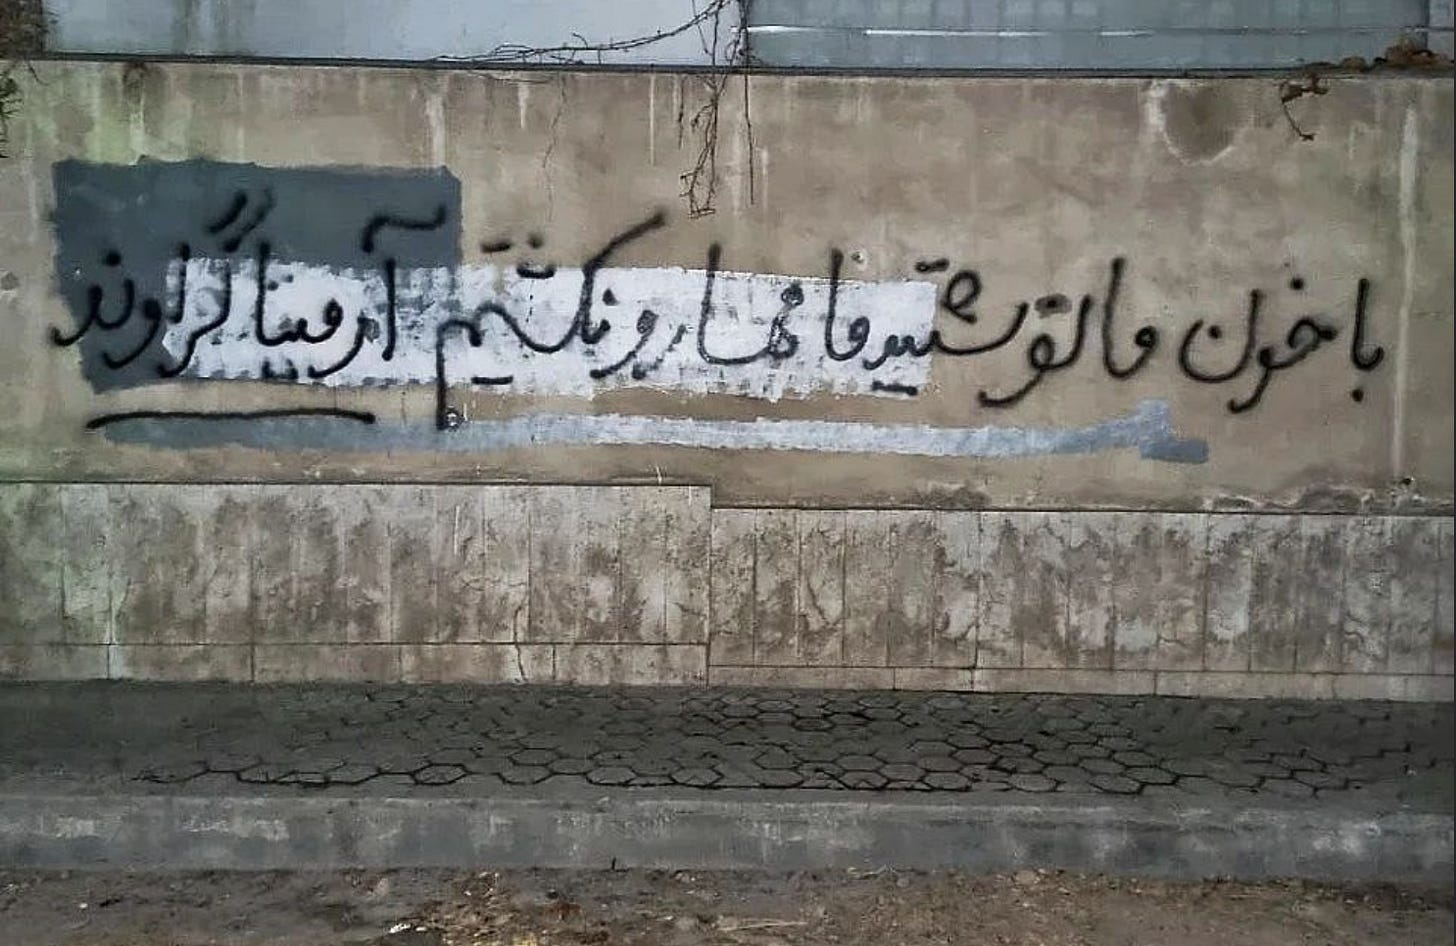 با خون ما نوشتید ما مهسا رو نکشتیم آرمیتا گراوند